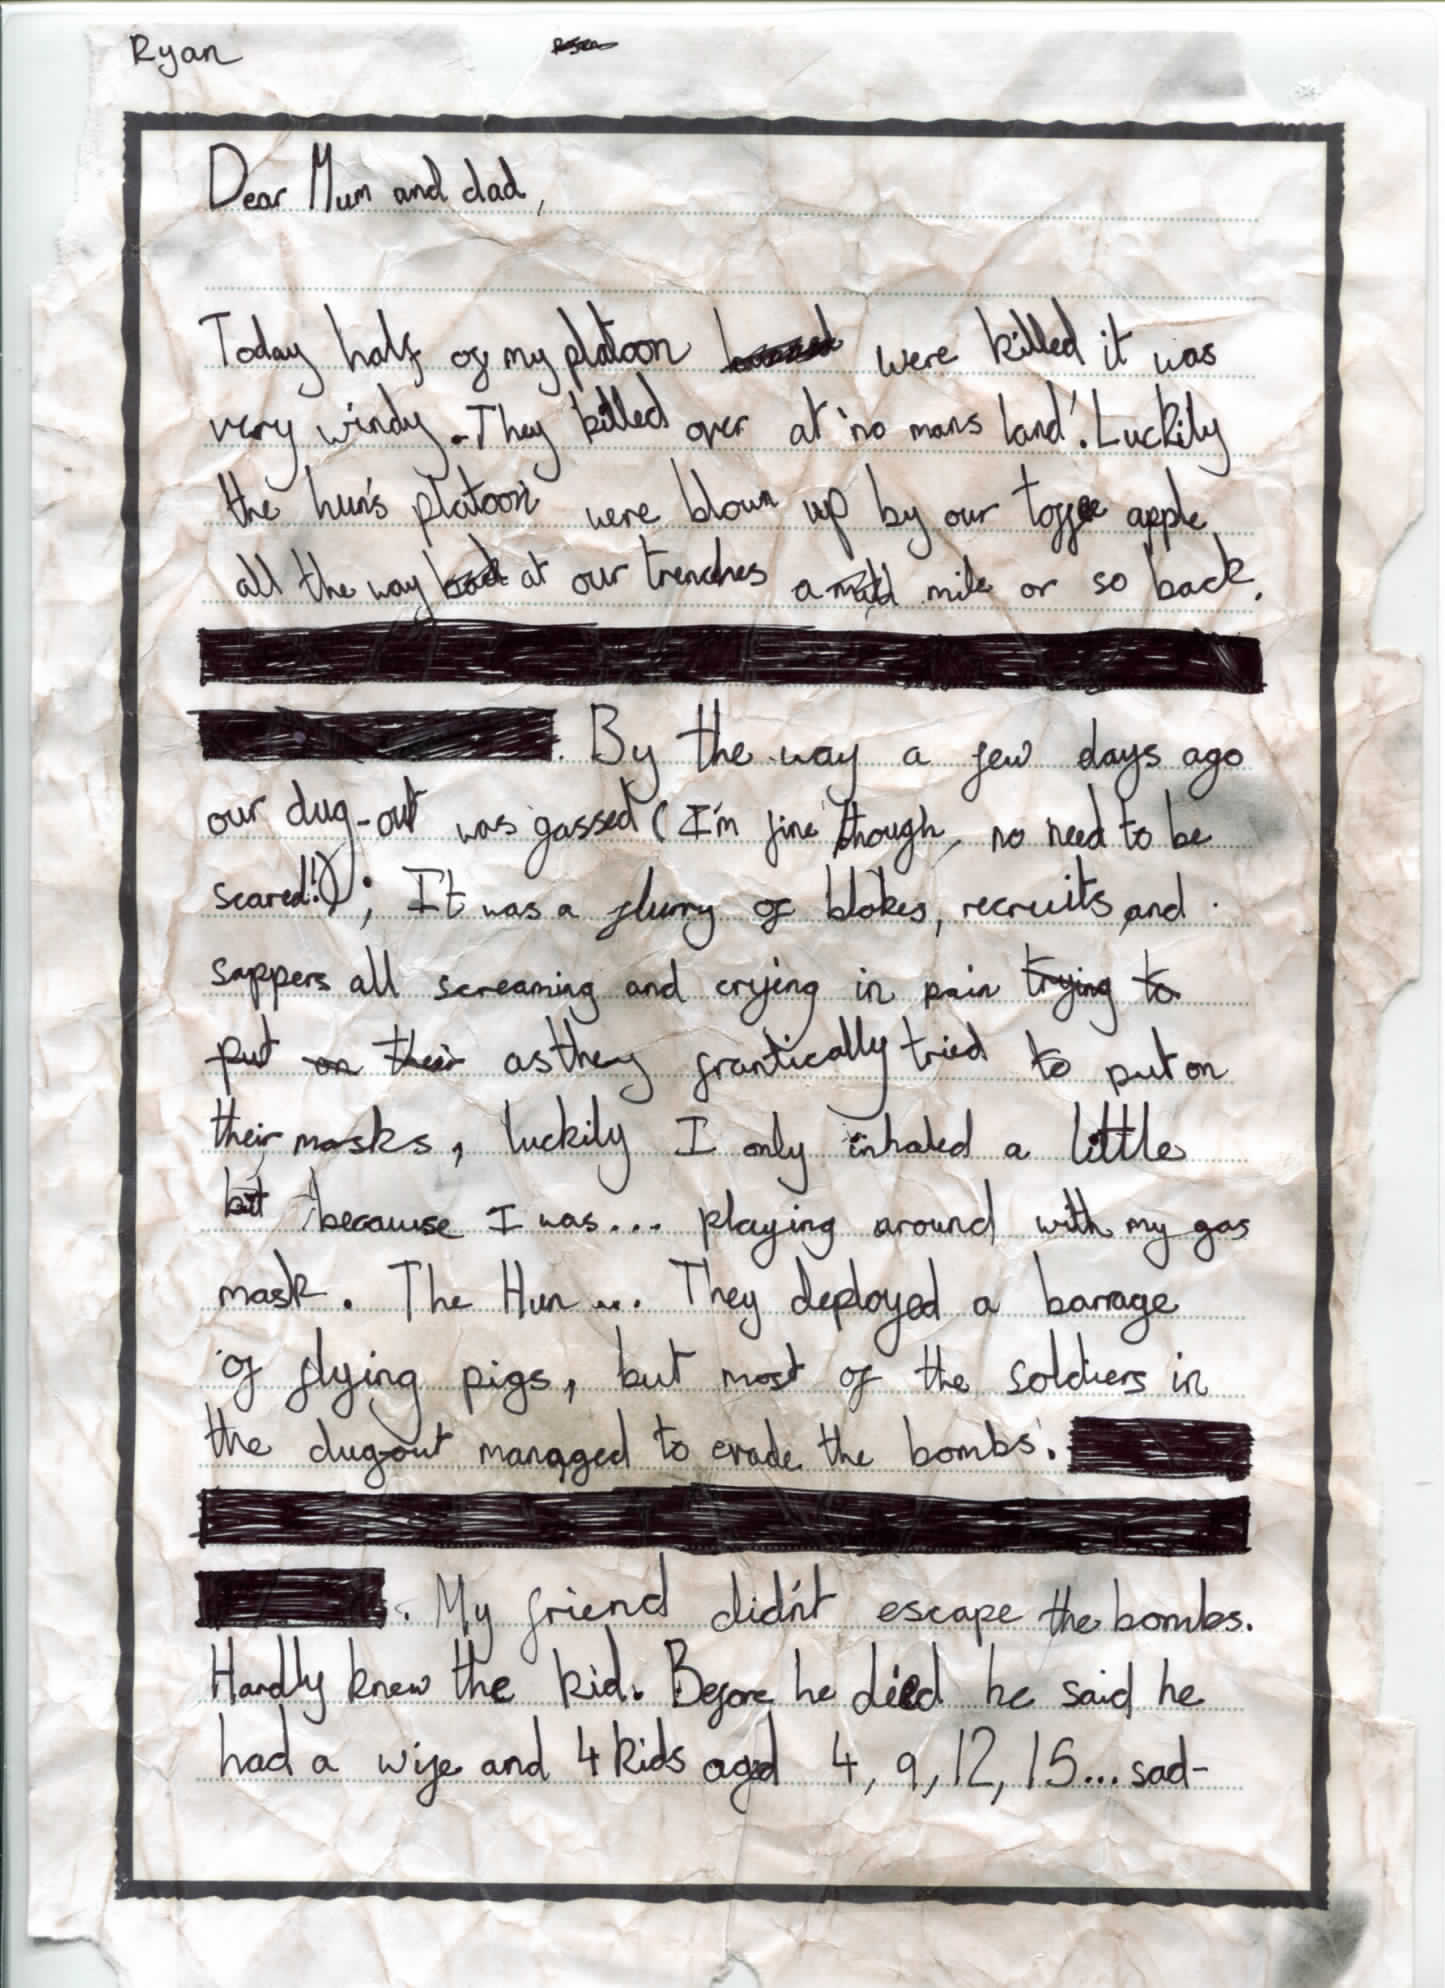 Ryan
Dear Mum and dad,
Today half of my platoon were killed it was
very windy. They killed over at 'no mans land'. Luckily
the hun's platoon were blown up by our toffee apple
all the way back at our trenches a mile or so back.
. By the way a few days ago
our dug-out was gassed (I'm fine though, no need to be
scared!); It was a flurry of blokes, recruits, and
sappers all screaming and crying in pain trying to
put on their as they frantically tried to put on
their masks, luckily I only inhaled a little
bit because I was... playing around with my gas
mask. The Hun... They deployed a barrage
of flying pigs, but most of the soldiers in
the dug-out managed to evade the bombs.
. My friend didn't escape the bombs.
Hardly knew the kid. Before he died he said he
had a wife and 4 kids aged 4, 9, 12, 15... sad-